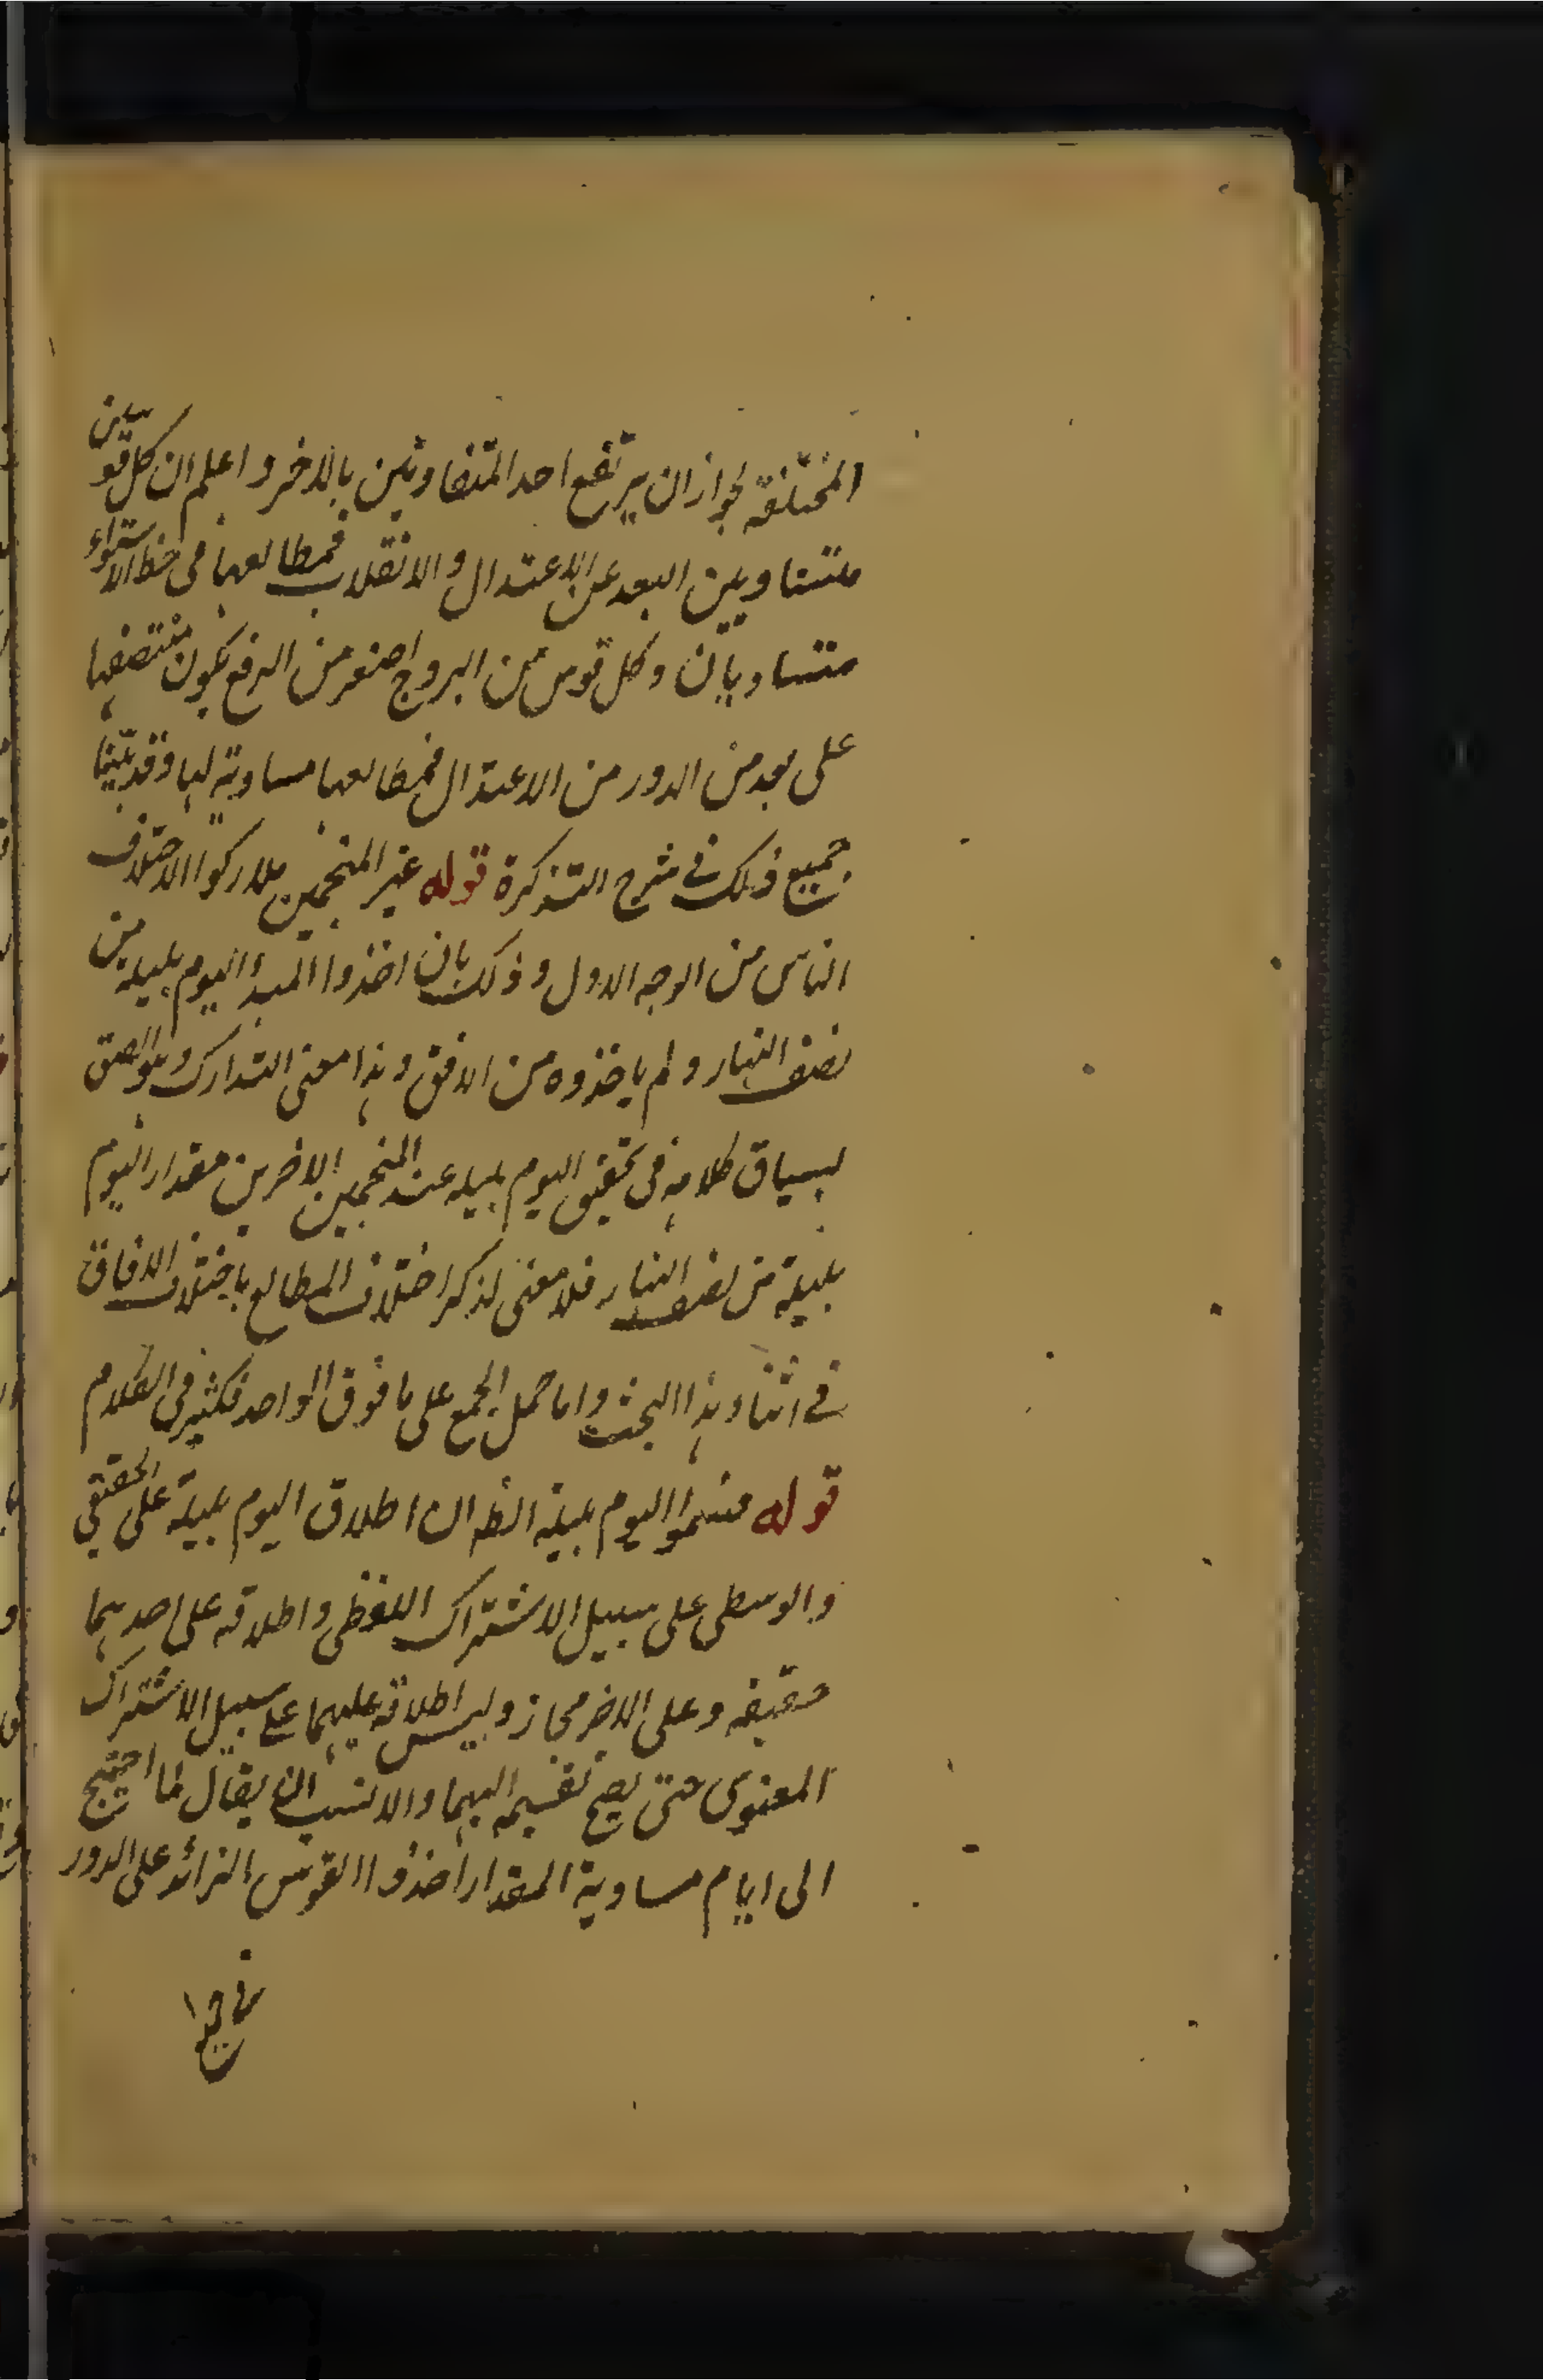 المختلفة لجواز ان يرتفع احد المتفاوتين بالاخر و اعلم ان كل قوسين
متساويين البعد عن الاعتدال و الانقلاب فمطالعها فى خط الاستواء
متساويان و كل قوس من البروج اصغر من الربع يكون منتصفها
على بعد من الدور من الاعتدال فمطالعها مساوية لها و قد بيّنا
جميع ذلك فى شرح التذكرة قوله غير المنجمين تداركوا الاختلاف
الناس من الوجه الاول و ذلك بان اخذوا المبدا اليوم بليله من
نصف النهار و لم ياخذوه من الافق و هذا معنى التدارك و
بسياق كلامه فى تحقيق اليوم بليله عند المنجمين الاخرين مقدار اليوم
بليلة من نصف النهار فلا معنى لذكر اختلاف المطالع باختلاف الافاق
فى اثناء هذا البحث و اما حمل الجمع على ما فوق الواحد فكثير فى الكلام
قوله قسموا اليوم بليلة الظ ان اطلاق اليوم بليلة على الحقيقي
و الوسطى على سبيل الاشتراك اللفظى و اطلاقه على احديهما
حقيقه و على الاخر مجاز و ليس اطلاقه عليهما على سبيل الاشتراك
المعنوى حتى يصح تقسيمه اليهما و الانسب ان يقال لما احتيج
الى ايام مساوية المقدار اخذوا القوس الزائد على الدور